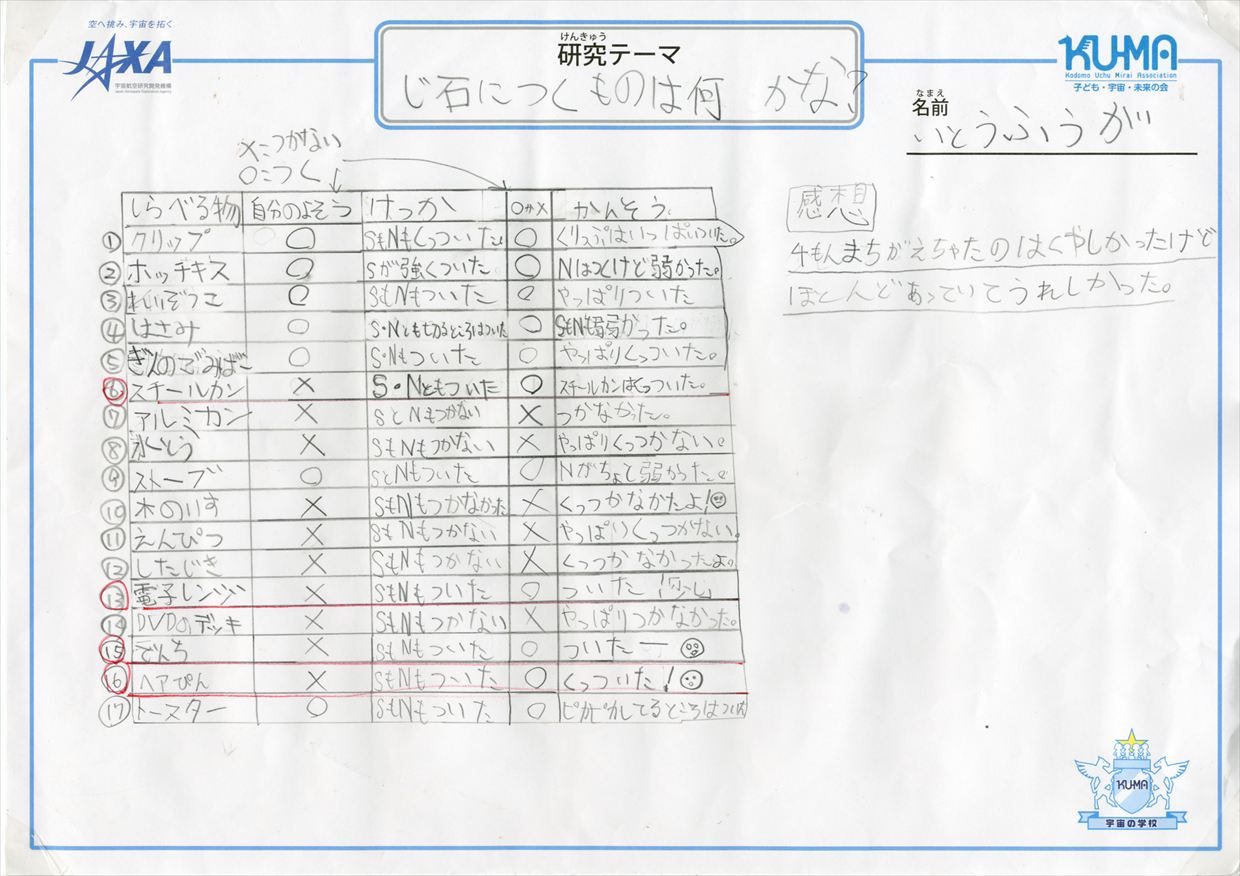 空へ挑み、宇宙を拓く
JAXA
宇宙航空研究開発機構
Japan Aerospace Exploration Agency
けんきゅう
研究テーマ
じ石につくものは何かな?
KU-MA
Kodomo Uchu Mirai Association
子ども・宇宙・未来の会
なまえ
名前
いとうふうが
×=つかない
○=つく
しらべる物 自分のよそう けっか ○か× かんそう
① クリップ ○ SもNもくっついた。 ○ くりっぷはいっぱいついた。
② ホッチキス ○ Sが強くついた ○ Nはつくけど弱かった。
③ れいぞうこ ○ SもNもついた ○ やっぱりついた
④ はさみ ○ S・Nとも切るところはついた ○ SもNも弱かった。
⑤ ぎんのごみばこ ○ S・Nもついた ○ やっぱりくっついた。
⑥ スチールカン × S・Nともついた ○ スチールカンはくっついた。
⑦ アルミカン × SとNもつかない × つかなかった。
⑧ 氷ざとう × SもNもつかない × やっぱりくっつかない。
⑨ ストーブ ○ SとNもついた ○ Nがちょと弱かった。
⑩ 木のいす × SもNもつかなかった × くっつかなかたよ!
⑪ えんぴつ × SもNもつかない × やっぱりくっつかない
⑫ したじき × SもNもつかない × くっつかなかったよ。
⑬ 電子レンジ × SもNもついた ○ ついた「少し」
⑭ DVDのデッキ × SもNもつかない × やっぱりつかなかった。
⑮ でんち × SもNもついた ○ ついたー
⑯ ヘアぴん × SもNもついた ○ くっついた!
⑰ トースター ○ SもNもついた ○ ピカピカしてるところはついた
感想
4もんまちがえちゃたのはくやしかったけど
ほとんどあっていてうれしかった。
KU-MA
宇宙の学校